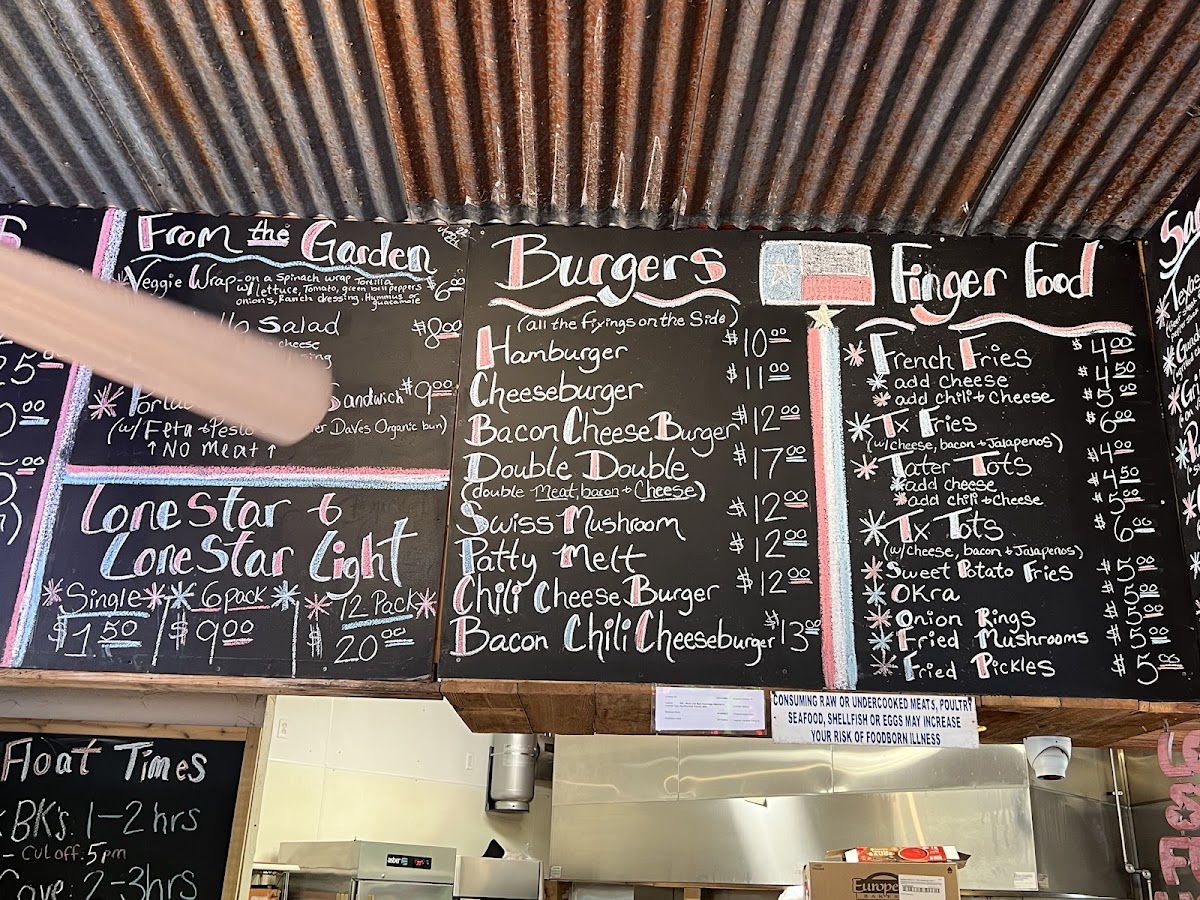 From the Garden
Veggie Wrap - on a Spinach wrap Tortilla
w/ lettuce, Tomato, green bell peppers
onions, Ranch dressing, Hummus or
guacamole
$6.00
Salad
$8.00
cheese
Sandwich $9.00
(w/ Feta + Pesto Daves Organic bun)
↑ No Meat ↑
Lone Star &
Lone Star Light
*Single* *6 pack* *12 Pack*
$1.50 $9.00 $20.00
Burgers
(all the fixings on the Side)
Hamburger $10.00
Cheeseburger $11.00
Bacon Cheese Burger $12.00
Double Double $17.00
(double Meat, bacon + Cheese)
Swiss Mushroom $12.00
Patty Melt $12.00
Chili Cheese Burger $12.00
Bacon Chili Cheeseburger $13.00
Finger Food
*French Fries $4.00
*add cheese $4.50
*add chili + Cheese $5.00
*Tx Fries $6.00
(w/cheese, bacon + Jalapenos)
*Tater Tots $4.00
*add cheese $4.50
*add chili + Cheese $5.00
*Tx Tots $6.00
(w/cheese, bacon + Jalapenos)
*Sweet Potato Fries $5.00
*Okra $5.00
*Onion Rings $5.00
*Fried Mushrooms $5.00
*Fried Pickles $5.00
CONSUMING RAW OR UNDERCOOKED MEATS, POULTRY
SEAFOOD, SHELLFISH OR EGGS MAY INCREASE
YOUR RISK OF FOODBORN ILLNESS
Float Times
BK's: 1-2 hrs
- Cut off: 5 pm
Cove: 2-3hrs
Europe